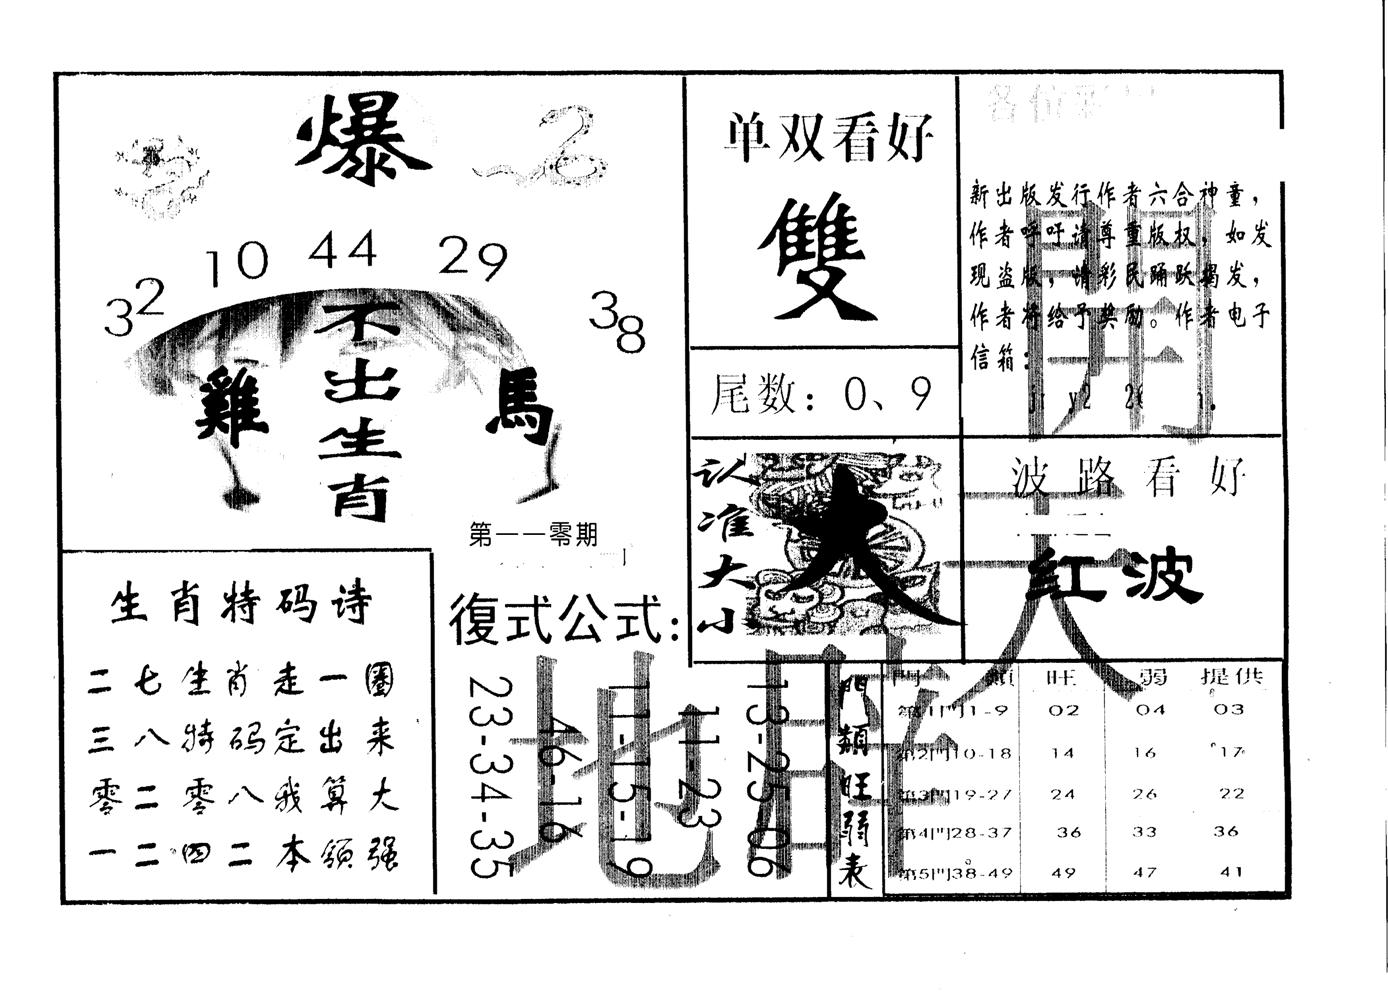 爆
32 10 44 29 38
不出生肖
雞
馬
第一一零期
单双看好
雙
尾数：0、9
新出版发行作者六合神童，
作者呼吁请尊重版权，如发
现盗版，请彩民踊跃揭发，
作者将给予奖励。作者电子
信箱：
认准大小
大
波路看好
红波
生肖特码诗
二七生肖走一圈
三八特码定出来
零二零八我算大
一二四二本领强
復式公式：
13-25-06
11-23
11-15-19
46-16
23-34-35
門類旺弱表
門 類 旺 弱 提供
第1門1-9 02 04 03
第2門10-18 14 16 17
第3門19-27 24 26 22
第4門28-37 36 33 36
第5門38-49 49 47 41